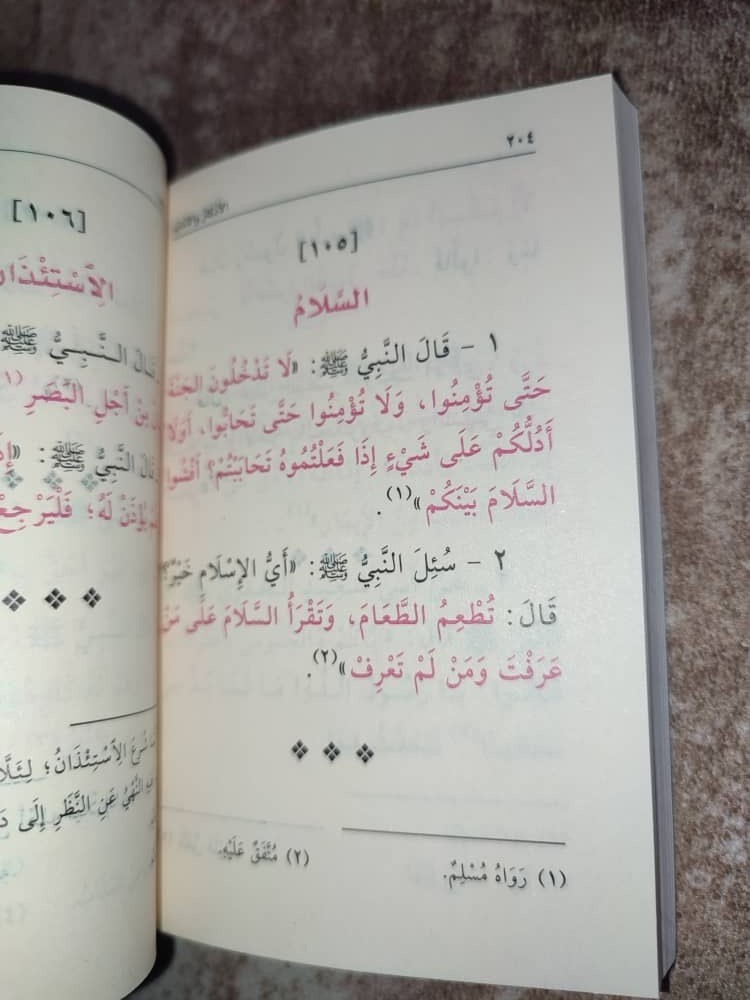 ٢٠٤
[١٠٥]
السَّلَامُ
١ - قَالَ النَّبِيُّ ﷺ: «لَا تَدْخُلُونَ الجَنَّةَ
حَتَّى تُؤْمِنُوا، وَلَا تُؤْمِنُوا حَتَّى تَحَابُّوا، أَوَلَا
أَدُلُّكُمْ عَلَى شَيْءٍ إِذَا فَعَلْتُمُوهُ تَحَابَبْتُمْ؟ أَفْشُوا
السَّلَامَ بَيْنَكُمْ»(١).
٢ - سُئِلَ النَّبِيُّ ﷺ: «أَيُّ الإِسْلَامِ خَيْرٌ؟
قَالَ: تُطْعِمُ الطَّعَامَ، وَتَقْرَأُ السَّلَامَ عَلَى مَنْ
عَرَفْتَ وَمَنْ لَمْ تَعْرِفْ»(٢).
(١) رَوَاهُ مُسْلِمٌ.
(٢) مُتَّفَقٌ عَلَيْهِ.
[١٠٦]
الِاسْتِئْذَانُ
قَالَ النَّبِيُّ ﷺ
مِنْ أَجْلِ الْبَصَرِ(١)
قَالَ النَّبِيُّ ﷺ:
يُؤْذَنْ لَهُ؛ فَلْيَرْجِعْ
شُرِعَ الِاسْتِئْذَانُ؛ لِئَلَّا
النَّهْيُ عَنِ النَّظَرِ إِلَى